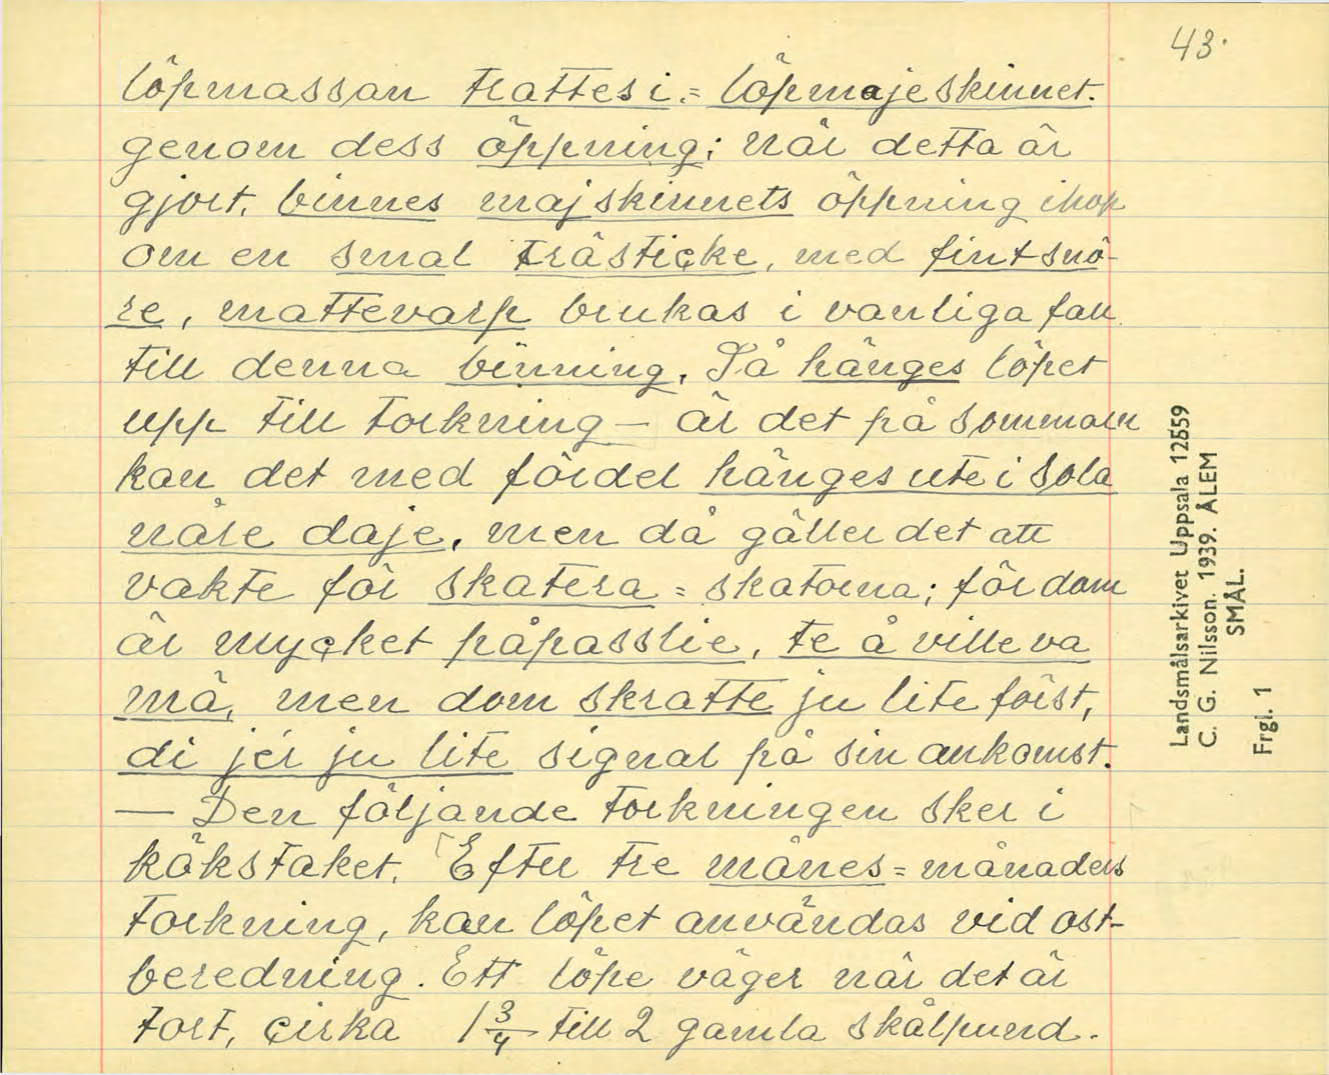 43.
löpmassan trattes i. = löpmajeskinnet.
genom dess öppning; när detta är
gjort, binnes majskinnets öppning ihop
om en smal trästicke, med fint snö-
re, mattevarp brukas i vanliga fall
till denna binning. Så hänges löpet
upp till torkning – är det på sommaren
kan det med fördel hänges ute i sola
nåre daje, men då gäller det att
vakte för skatera = skatorna; för dom
är mycket påpasslie, te å ville va
mä, men dom skratte ju lite först,
di jér ju lite signal på sin ankomst.
— Den följande torkningen sker i
kökstaket. Efter tre månes = månaders
torkning, kan löpet användas vid ost-
beredning. Ett löpe väger när det är
tort, cirka 1 3/4 till 2 gamla skålpund.
Landsmålsarkivet Uppsala 12559
C. G. Nilsson. 1939. ÅLEM
SMÅL.
Frgl. 1